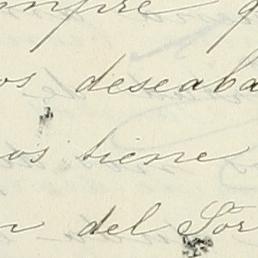 mpre q
os deseaba
os tiene
n del Sor